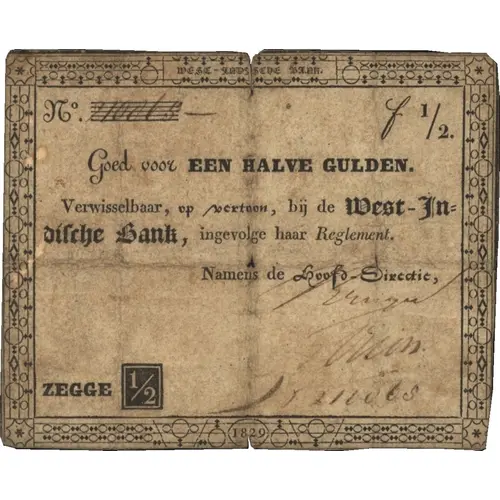 WEST-INDISCHE BANK.
No.
ƒ 1/2.
Goed voor EEN HALVE GULDEN.
Verwisselbaar, op vertoon, bij de West-In-
dische Bank, ingevolge haar Reglement.
Namens de Hoofd-Directie,
ZEGGE 1/2
1829